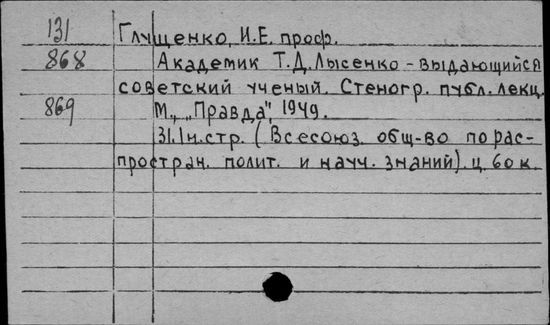 131 Глущенко, И.Е. проф.
868 Академик Т.Д. Лысенко - выдающийся
советский ученый. Стеногр. публ. лекц.
869 М., „Правда", 1949.
31.1н.стр. (Всесоюз. общ-во по рас-
простран. полит. и науч. знаний). ц. 60 к.